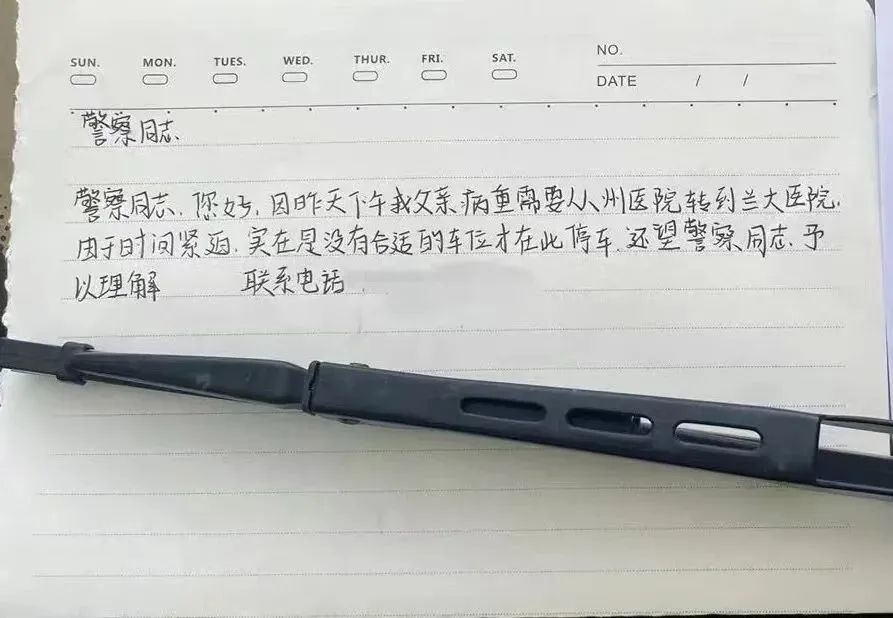 SUN. MON. TUES. WED. THUR. FRI. SAT.
NO.
DATE / /
警察同志
警察同志.您好,因昨天下午我父亲病重需要从人州医院转到兰大医院.
由于时间紧迫.实在是没有合适的车位才在此停车.还望警察同志.予
以理解 联系电话